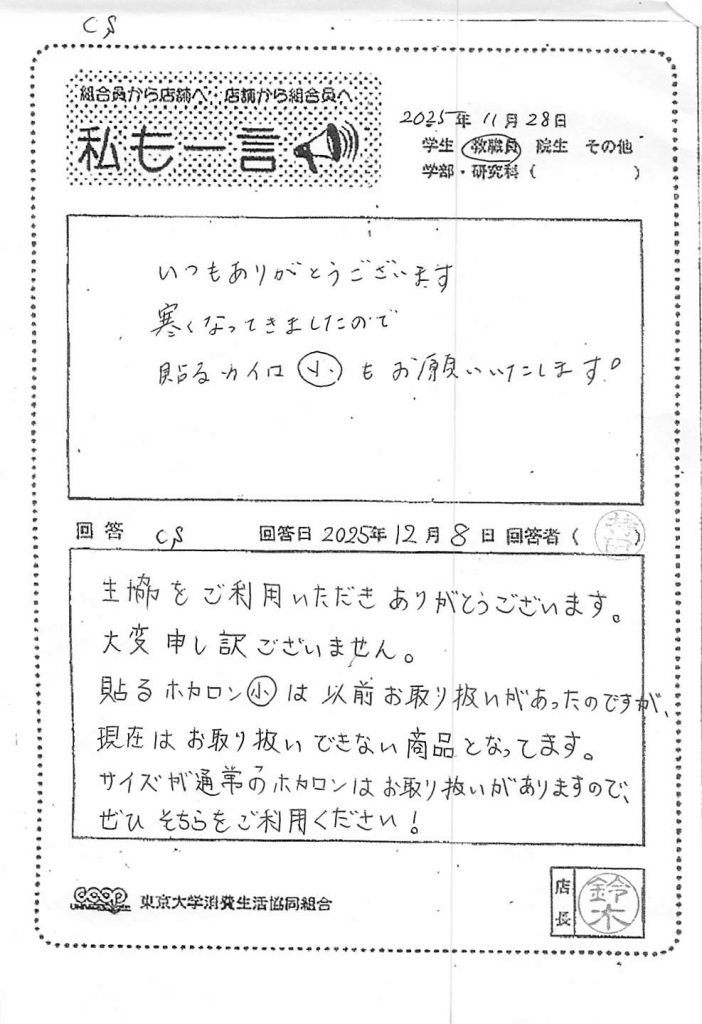 CS
組合員から店舗へ・店舗から組合員へ
私も一言
2025年11月28日
学生 教職員 院生 その他
学部・研究科( )
いつもありがとうございます
寒くなってきましたので
貼るカイロ 小 もお願いいたします。
回答 CS 回答日 2025年12月8日 回答者( )
生協をご利用いただきありがとうございます。
大変申し訳ございません。
貼るホカロン小は以前お取り扱いがあったのですが、
現在はお取り扱いできない商品となってます。
サイズが通常のホカロンはお取り扱いがありますので、
ぜひそちらをご利用ください!
coop 東京大学消費生活協同組合
店長 鈴木